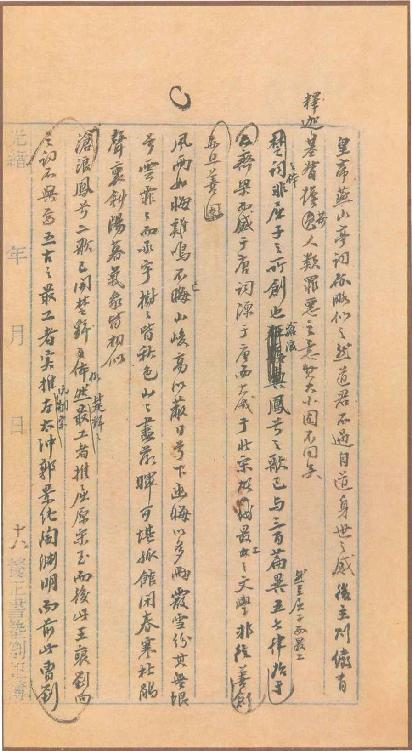 皇帝燕山亭詞亦略似之然道君不過自道身世之感後主則儼有
釋迦基督擔荷人類罪惡之意其大小固不同矣
楚詞之體非屈子之所創也滄浪鳳兮之歌已與三百篇異然至屈子而最工
五七律始于齊梁而盛于唐詞源于唐而大成于北宋故最工之文學非徒善創
亦且善因
風雨如晦雞鳴不已山峻高以蔽日兮下幽晦以多雨霰雪紛其無垠
兮雲霏霏而承宇樹樹皆秋色山山盡落暉可堪孤館閉春寒杜鵑
聲裏斜陽暮氣象皆相似
滄浪鳳兮二歌已開楚辭體格然楚辭之最工者推屈原宋玉而後此王褒劉向
之詞不與焉五古之最工者實推阮嗣宗左太沖郭景純陶淵明而前此曹劉
光緒 年 月 日
十八